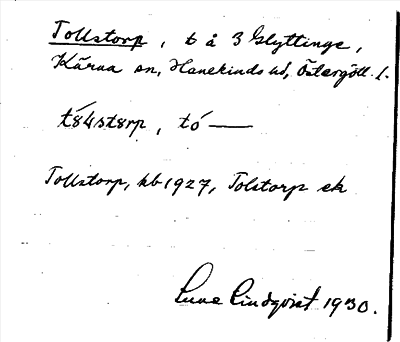 Tollstorp, t å 3 Glyttinge,
Kärna sn, Hanekinds hd, Östergötl. l.
tó
Tollstorp, kb 1927, Tolstorp ek
Sune Lindqvist 1930.